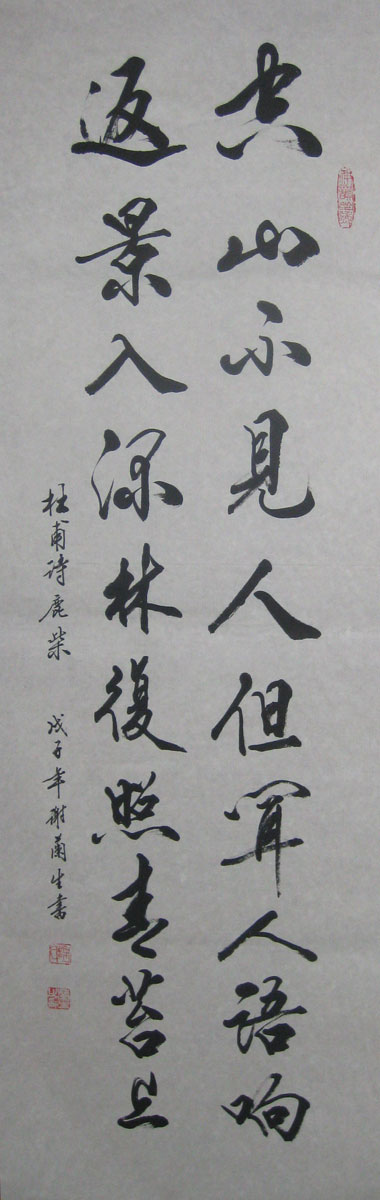 空山不見人但闻人语响
返景入深林復照青苔上
杜甫诗鹿柴 戊子年谢蘭生書